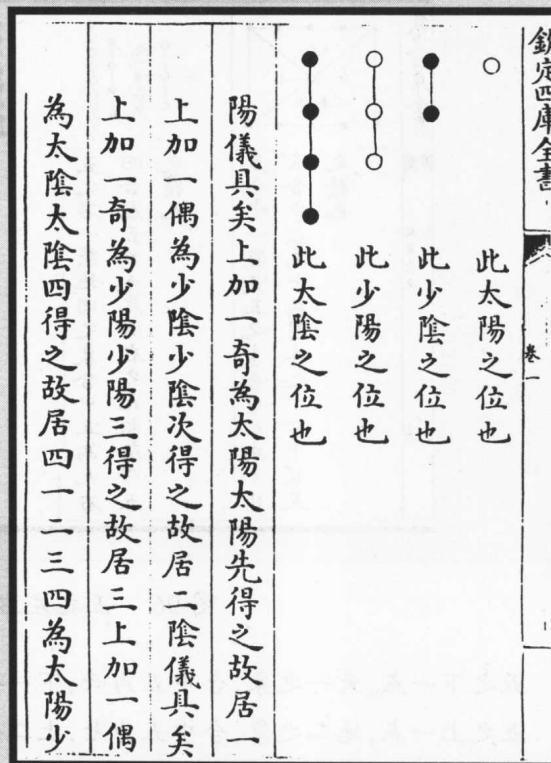 欽定四庫全書
卷一
此太陽之位也
此少陰之位也
此少陽之位也
此太陰之位也
陽儀具矣上加一奇為太陽太陽先得之故居一
上加一偶為少陰少陰次得之故居二陰儀具矣
上加一奇為少陽少陽三得之故居三上加一偶
為太陰太陰四得之故居四一二三四為太陽少